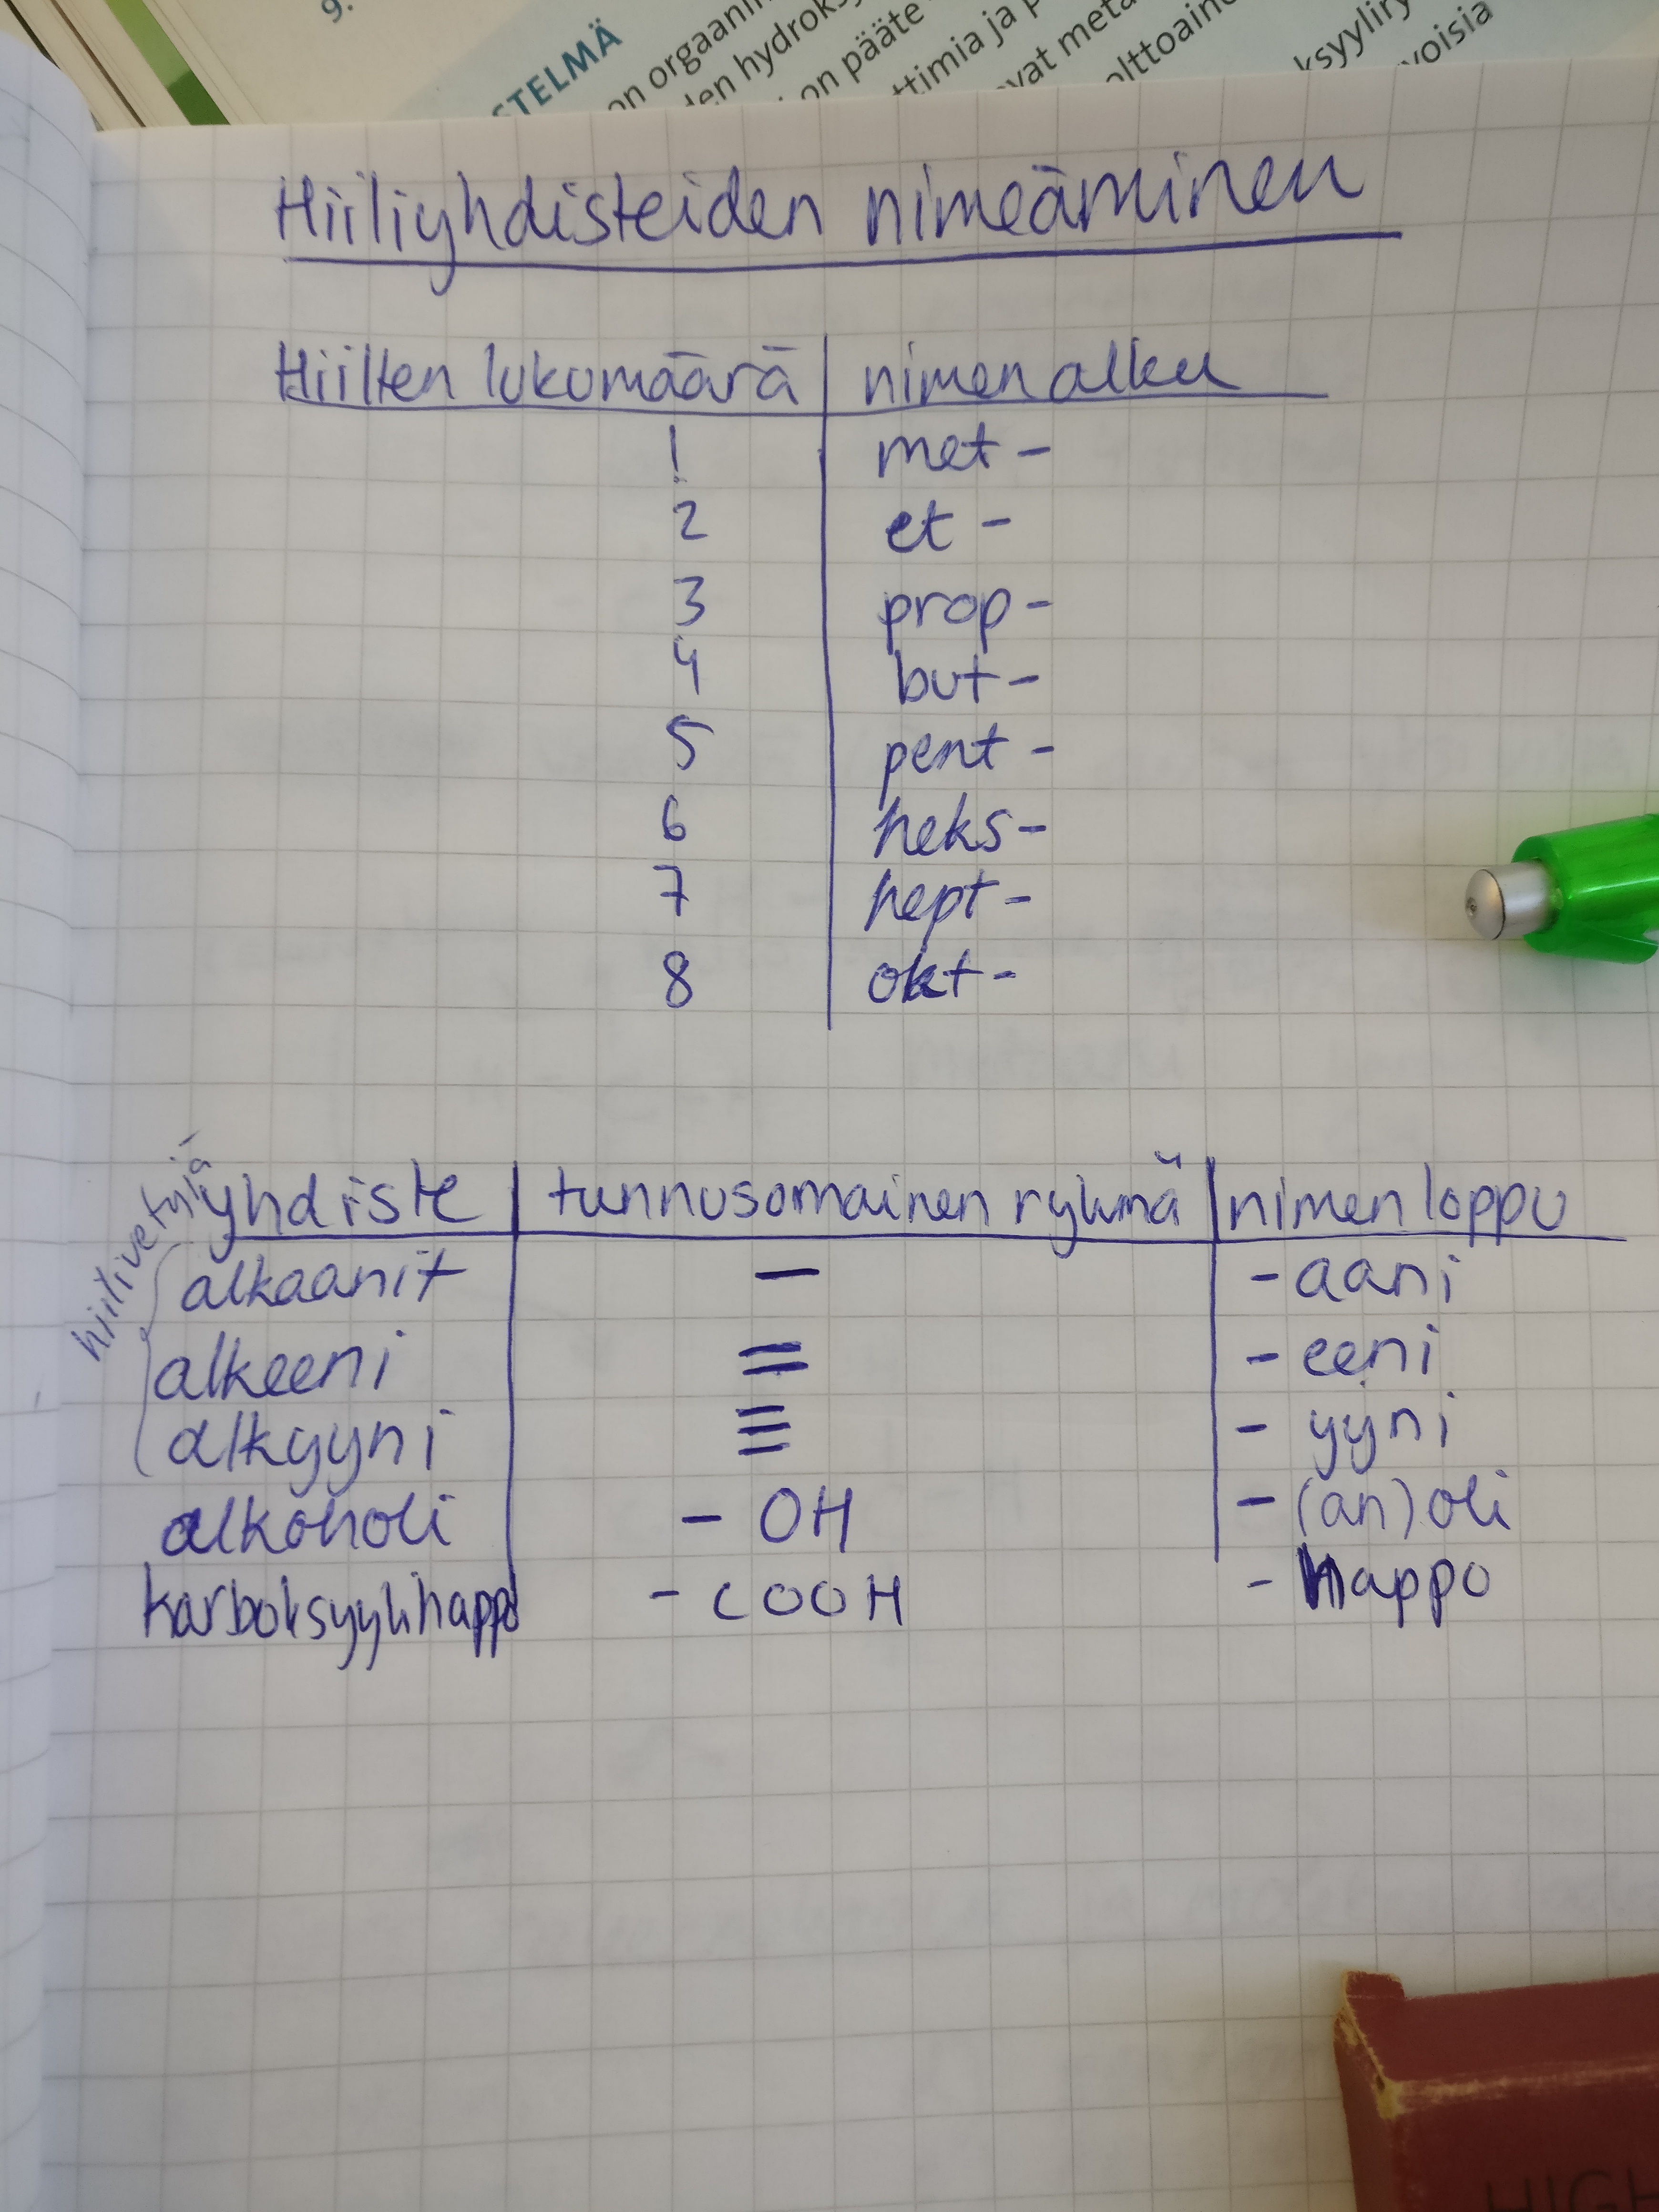 9.
STELMÄ
on orgaanin
den hydroksy
on pääte
ttimia ja p
vat meta
olttoaine
ksyyliry
voisia
Hiiliyhdisteiden nimeäminen
Hiilten lukumäärä | nimen alku
1 met-
2 et-
3 prop-
4 but-
5 pent-
6 heks-
7 hept-
8 okt-
hiilivetyjä
yhdiste | tunnusomainen ryhmä | nimen loppu
alkaanit — -aani
alkeeni = -eeni
alkyyni ≡ -yyni
alkoholi -OH -(an)oli
karboksyylihappo -COOH -happo
HIGH